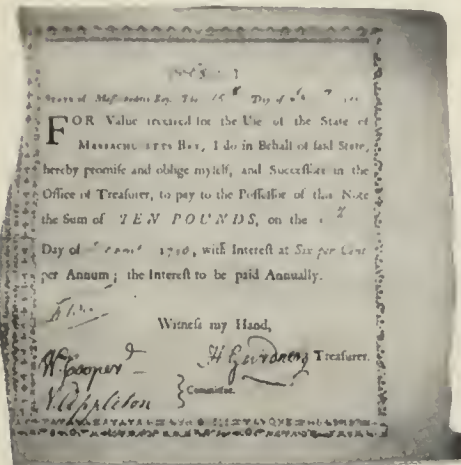 State of Bay. The Day of
FOR Value received for the Use of the State of
MASSACHUSETTS BAY, I do in Behalf of said State,
hereby promise and oblige myself, and Successors in the
Office of Treasurer, to pay to the Possessor of this Note
the Sum of TEN POUNDS, on the
Day of with Interest at Six per Cent
per Annum; the Interest to be paid Annually.
Witness my Hand,
W Cooper
H Gardner Treasurer.
N Appleton
Committee.